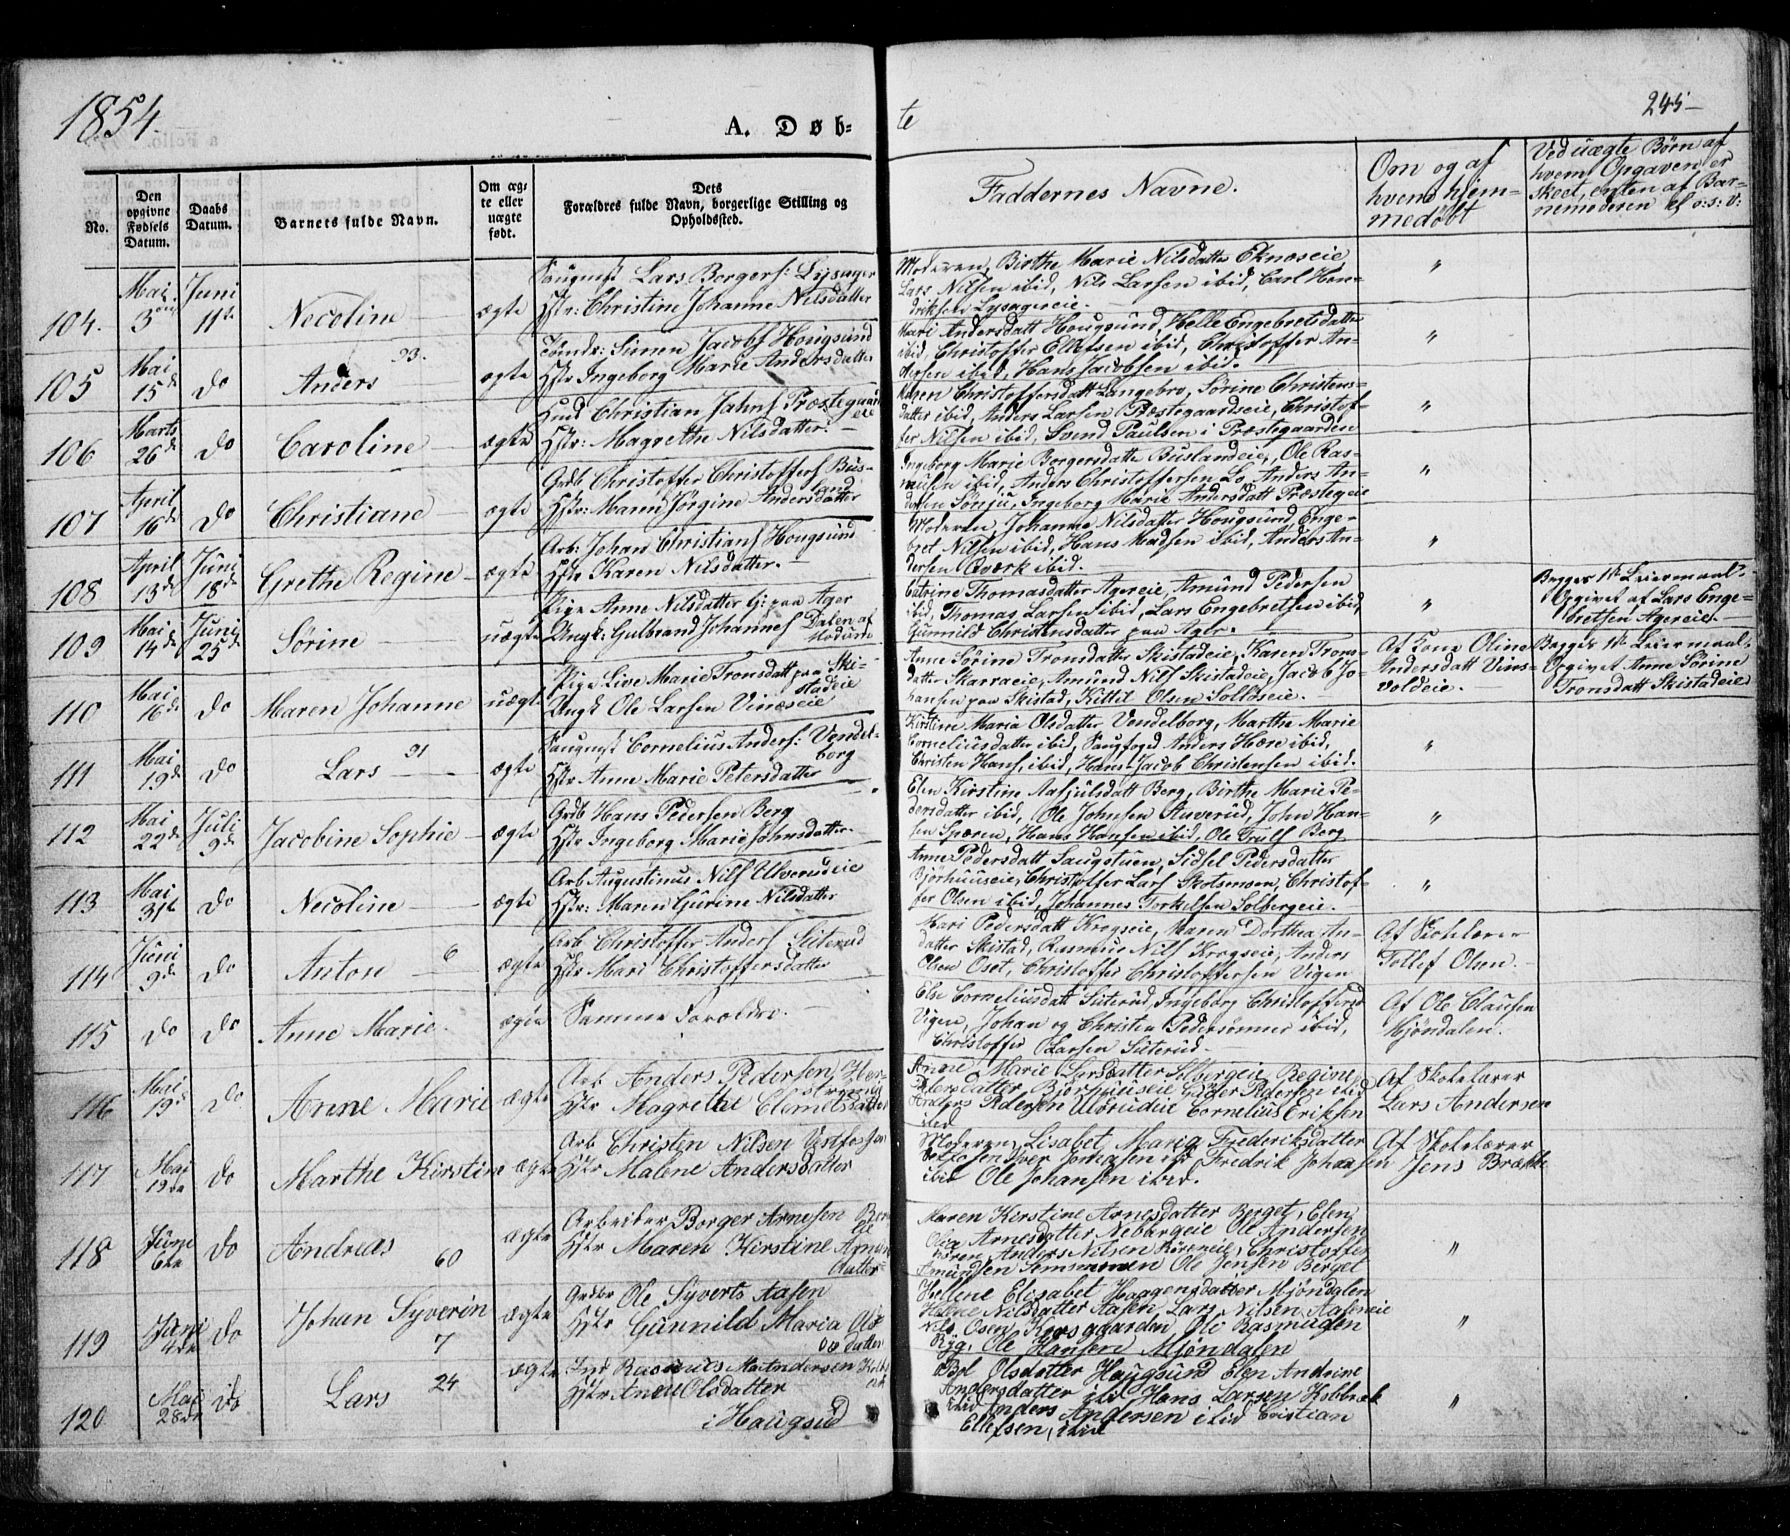 1854.
A. Døb-
te
245-
No.
Den opgivne Fødsels Datum.
Daabs Datum.
Barnets fulde Navn.
Om ægte eller uægte født.
Dets Forældres fulde Navn, borgerlige Stilling og Opholdssted.
Faddernes Navne.
Om og af hvem hjemmedøbt
Ved uægte Børn af hvem Opgaven er skeet, enten af Barnemoderen el. o: s: v:
104. Mai 3 Juni 11te Necoline ægte
Lars Borgers: Lysager
Hstr: Christine Johanne Nilsdatter
Moderen, Birthe Marie Nilsdatter Eknæseie
Lars Nilsen ibid, Nils Larsen ibid, Carl Hen-
driksen Lysagereie. "
105 Mai 15de do Anders 23. ægte
Simen Jacobs Hougsund
Hstr Ingeborg Marie Andersdatter
Kari Andersdatt Hougsund, Helle Engebretsdatter
ibid, Christoffer Ellefsen ibid, Christoffer An-
dersen ibid, Hans Jacobsen ibid. "
106 Marts 26de do Caroline ægte
Huusd Christian Jahns Præstegaards
eie
Hstr: Magrethe Nilsdatter.
Karen Christoffersdatt Langebro, Sørine Christens-
datter ibid, Anders Larsen Præstegaardseie, Christof-
fer Nilsen ibid, Svend Paulsen i Præstegaarden "
107 April 16de do Christiane ægte
Grdb Christoffer Christoffers Bus-
land
Hstr: Maren Jørgine Andersdatter
Ingeborg Marie Borgersdatter Buslandeie, Ole Ras-
musen ibid, Anders Christoffersen Lo, Anders An-
dersen Sønju, Ingeborg Marie Andersdatt Præstegeie "
108 April 13de Juni 18de Grethe Regine ægte
Arb: Johan Christians Hougsund
Hstr Karen Nilsdatter.
Moderen, Johanne Nilsdatter Hougsund, Enge-
bret Nilsen ibid, Hans Madsen ibid, Anders An-
dersen Qværk ibid. "
109 Mai 14de Juni 25de Sørine uægte
Pige Anne Nilsdatter G: paa Ager
Ungk: Gulbrand Johannes Dalen af
Modum
Catrine Thomasdatter Agereie, Amund Pedersen
ibid, Thomas Larsen ibid, Lars Engebretsen ibid,
Gunnild Christensdatter paa Ager. "
Begges 1ste Leiermaal.
Opgivet af Lars Enge-
bretsen Agereie.
110 Mai 16de do Maren Johanne uægte
Pige Live Marie Tronsdatt paa Ski-
stadeie
Ungk Ole Larsen Vinæseie
Anne Sørine Tronsdatter Skistadeie, Karen Trons-
datter Skarraeie, Amund Nils Skistadeie, Jacob Jo-
hansen paa Skistad, Kittil Olsen Solløseie.
Af Kone Oline
Andersdatt Vins-
voldeie.
Begges 1ste Leiermaal.
Opgivet Anne Sørine
Tronsdatt Skistadeie
111 Mai 19de do Lars 21 ægte
Saugmst Cornelius Anders: Vendel-
borg
Hstr Anne Marie Petersdatter
Kirstine Maria Olsdatter Vendelborg, Marthe Marie
Corneliusdatter ibid, Saugfoged Anders Hære ibid,
Christen Hans, ibid, Hans Jacob Christensen ibid. "
112 Mai 22de Juli 9de Jacobine Sophie ægte
Grdb Hans Pedersen Berg
Hstr Ingeborg Marie Johnsdatter.
Elen Kirstine Aasjulsdatt Berg, Birthe Marie Pe-
dersdatter ibid, Ole Johnsen Stuverud, John Han-
sen Spæren, Hans Hansen ibid, Ole Truls Berg "
113 Mai 31te do Necoline ægte
Arb: Augustinus Nils Ulverudeie
Hstr: Maren Gurine Nilsdatter
Anne Pedersdatt Saugstuen, Sidsel Pedersdatter
Bjørhuuseie, Christoffer Lars Skotsmoen, Christof-
fer Olsen ibid, Johannes Torkelsen Solbergeie. "
114 Juni 9de do Anton 6 ægte
Arb Christoffer Anders Siterud
Hstr Mari Christoffersdatter
Mari Pedersdatt Krogseie, Maren Dorthea An-
datter Skistad, Rasmus Nils Krogseie, Anders
Olsen Oset, Christoffer Christoffersen Vigen
Af Skolelærer
Tollef Olsen.
115 do do Anne Marie ægte
Samme Forældre.
Else Corneliusdatt Siterud, Ingeborg Christoffersd
Vigen, Johan og Christen Pedersønner ibid,
Christoffer Larsen Siterud.
Af Ole Clausen
Mjøndalen.
116 Mai 19de do Anne Marie ægte
Arb Anders Pedersen,
Hstr Magrethe
Anne Marie Larsdatter Solbergeie, Regine
Pedersdatter, Bjørhuuseie, Peder Pedersen ibid
Anders Pedersen Cornelius Eriksen
ibid
Af Skolelærer
Lars Andersen
117 Mai 19de do Marthe Kirstine ægte
Arb Christen Nilsen Vestfossen
Hstr Malene Andersdatter
Moderen, Lisabet Maria Frederiksdatter
Vestfossen Iver Jonassen ibid Fredrik Johansen
ibid Ole Johansen ibid.
Af Skolelærer
Jens Brække
118 Juni 6te do Andreas 60 ægte
Arbeider Borger Arnesen
Hstr Maren Kirstine Arnes
datter
Maren Kirstine Arnesdatter Berget, Elen
Olia Arnesdatter Nebergeie Ole Andersen
Anders Nilsen Christoffer
Amundsen Ole Jensen Berget "
119 Juni 4de do Johan Syverin 7 ægte
Ole Syverts Aasen
Hstr Gunnild Maria Ols
datter
Hellene Elisabet Haagensdatter Mjøndalen
Helene Nilsdatter Aasen, Lars Nilsen Aaseneie
Nils Osen Korsgaarden Ole Rasmusen
Ryg, Ole Hansen Mjøndalen "
120 Mai 28de do Lars 24 ægte
Rasmus Andersen
Hstr Anne Olsdatter
i Haugsud
Olsdatter Haugsund Elen Andrine
Andersdatter ibid Hans Larsen
ibid Anders Andersen ibid Cristian
Ellefsen, ibid "